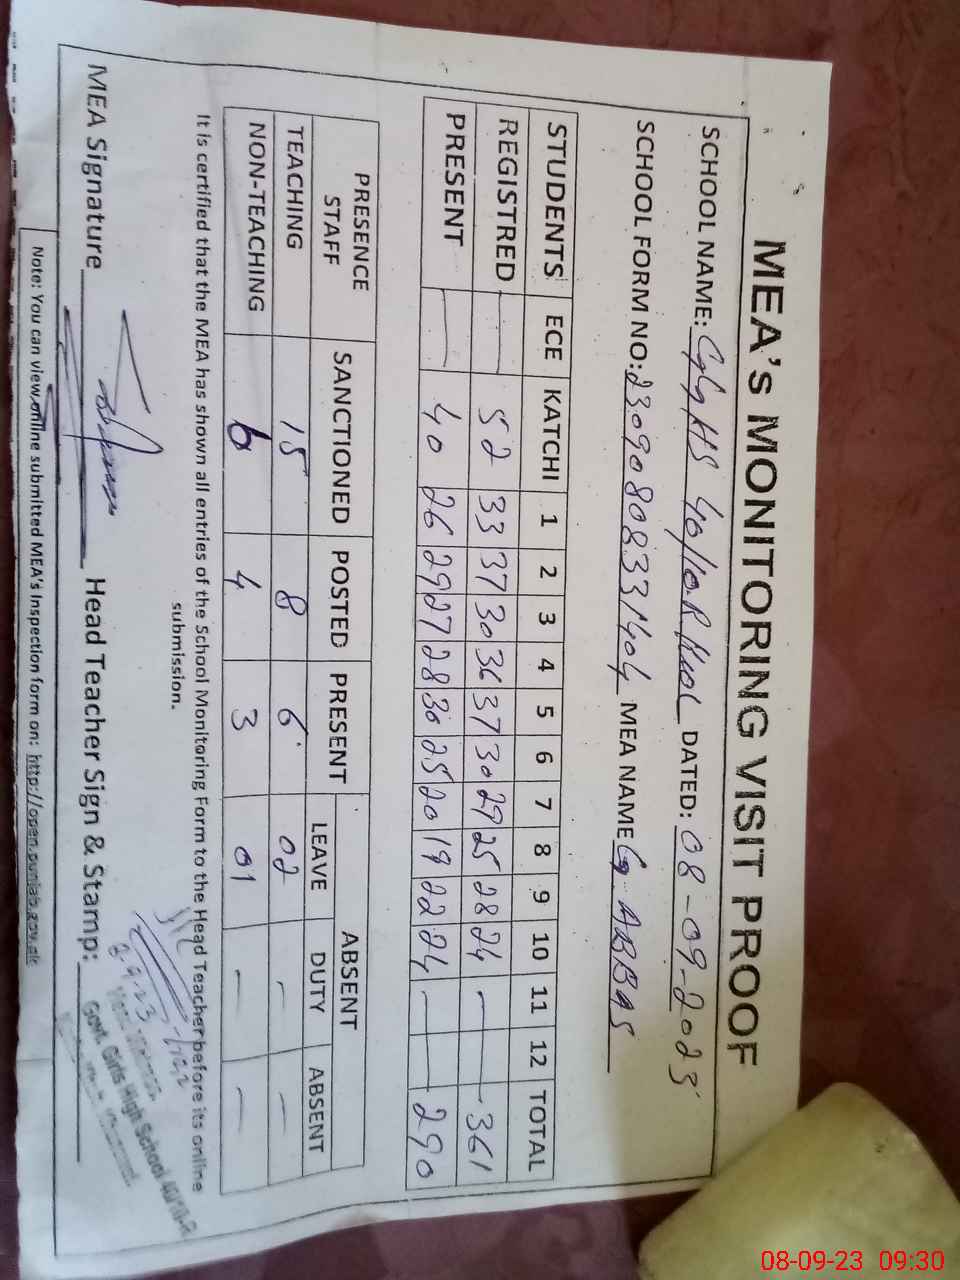 MEA's MONITORING VISIT PROOF
SCHOOL NAME: GGHS 40/10R KWL DATED: 08-09-2023
SCHOOL FORM NO: 23090808331404 MEA NAME G. ABBAS
STUDENTS ECE KATCHI 1 2 3 4 5 6 7 8 9 10 11 12 TOTAL
REGISTRED — 52 33 37 30 36 37 30 29 25 28 24 — — 361
PRESENT — 40 26 29 27 28 30 25 20 19 22 24 — — 290
PRESENCE STAFF SANCTIONED POSTED PRESENT ABSENT
LEAVE DUTY ABSENT
TEACHING 15 8 6 02 — —
NON-TEACHING 6 4 3 01 — —
It is certified that the MEA has shown all entries of the School Monitoring Form to the Head Teacher before its online
submission.
MEA Signature Head Teacher Sign & Stamp:
8.9.23
Govt. Girls High School 40/10-R
Note: You can view online submitted MEA's Inspection form on: http://open.punjab.gov.pk
08-09-23 09:30